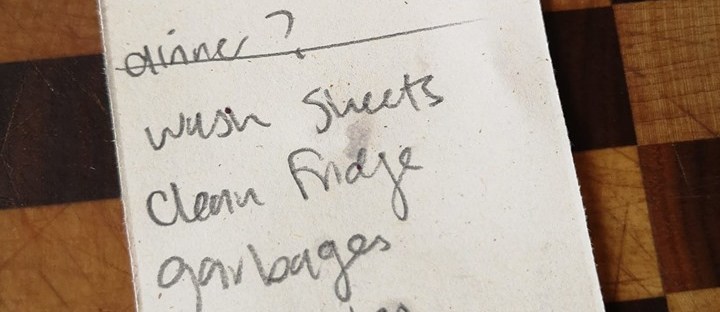 dinner?
wash sheets
clean fridge
garbages